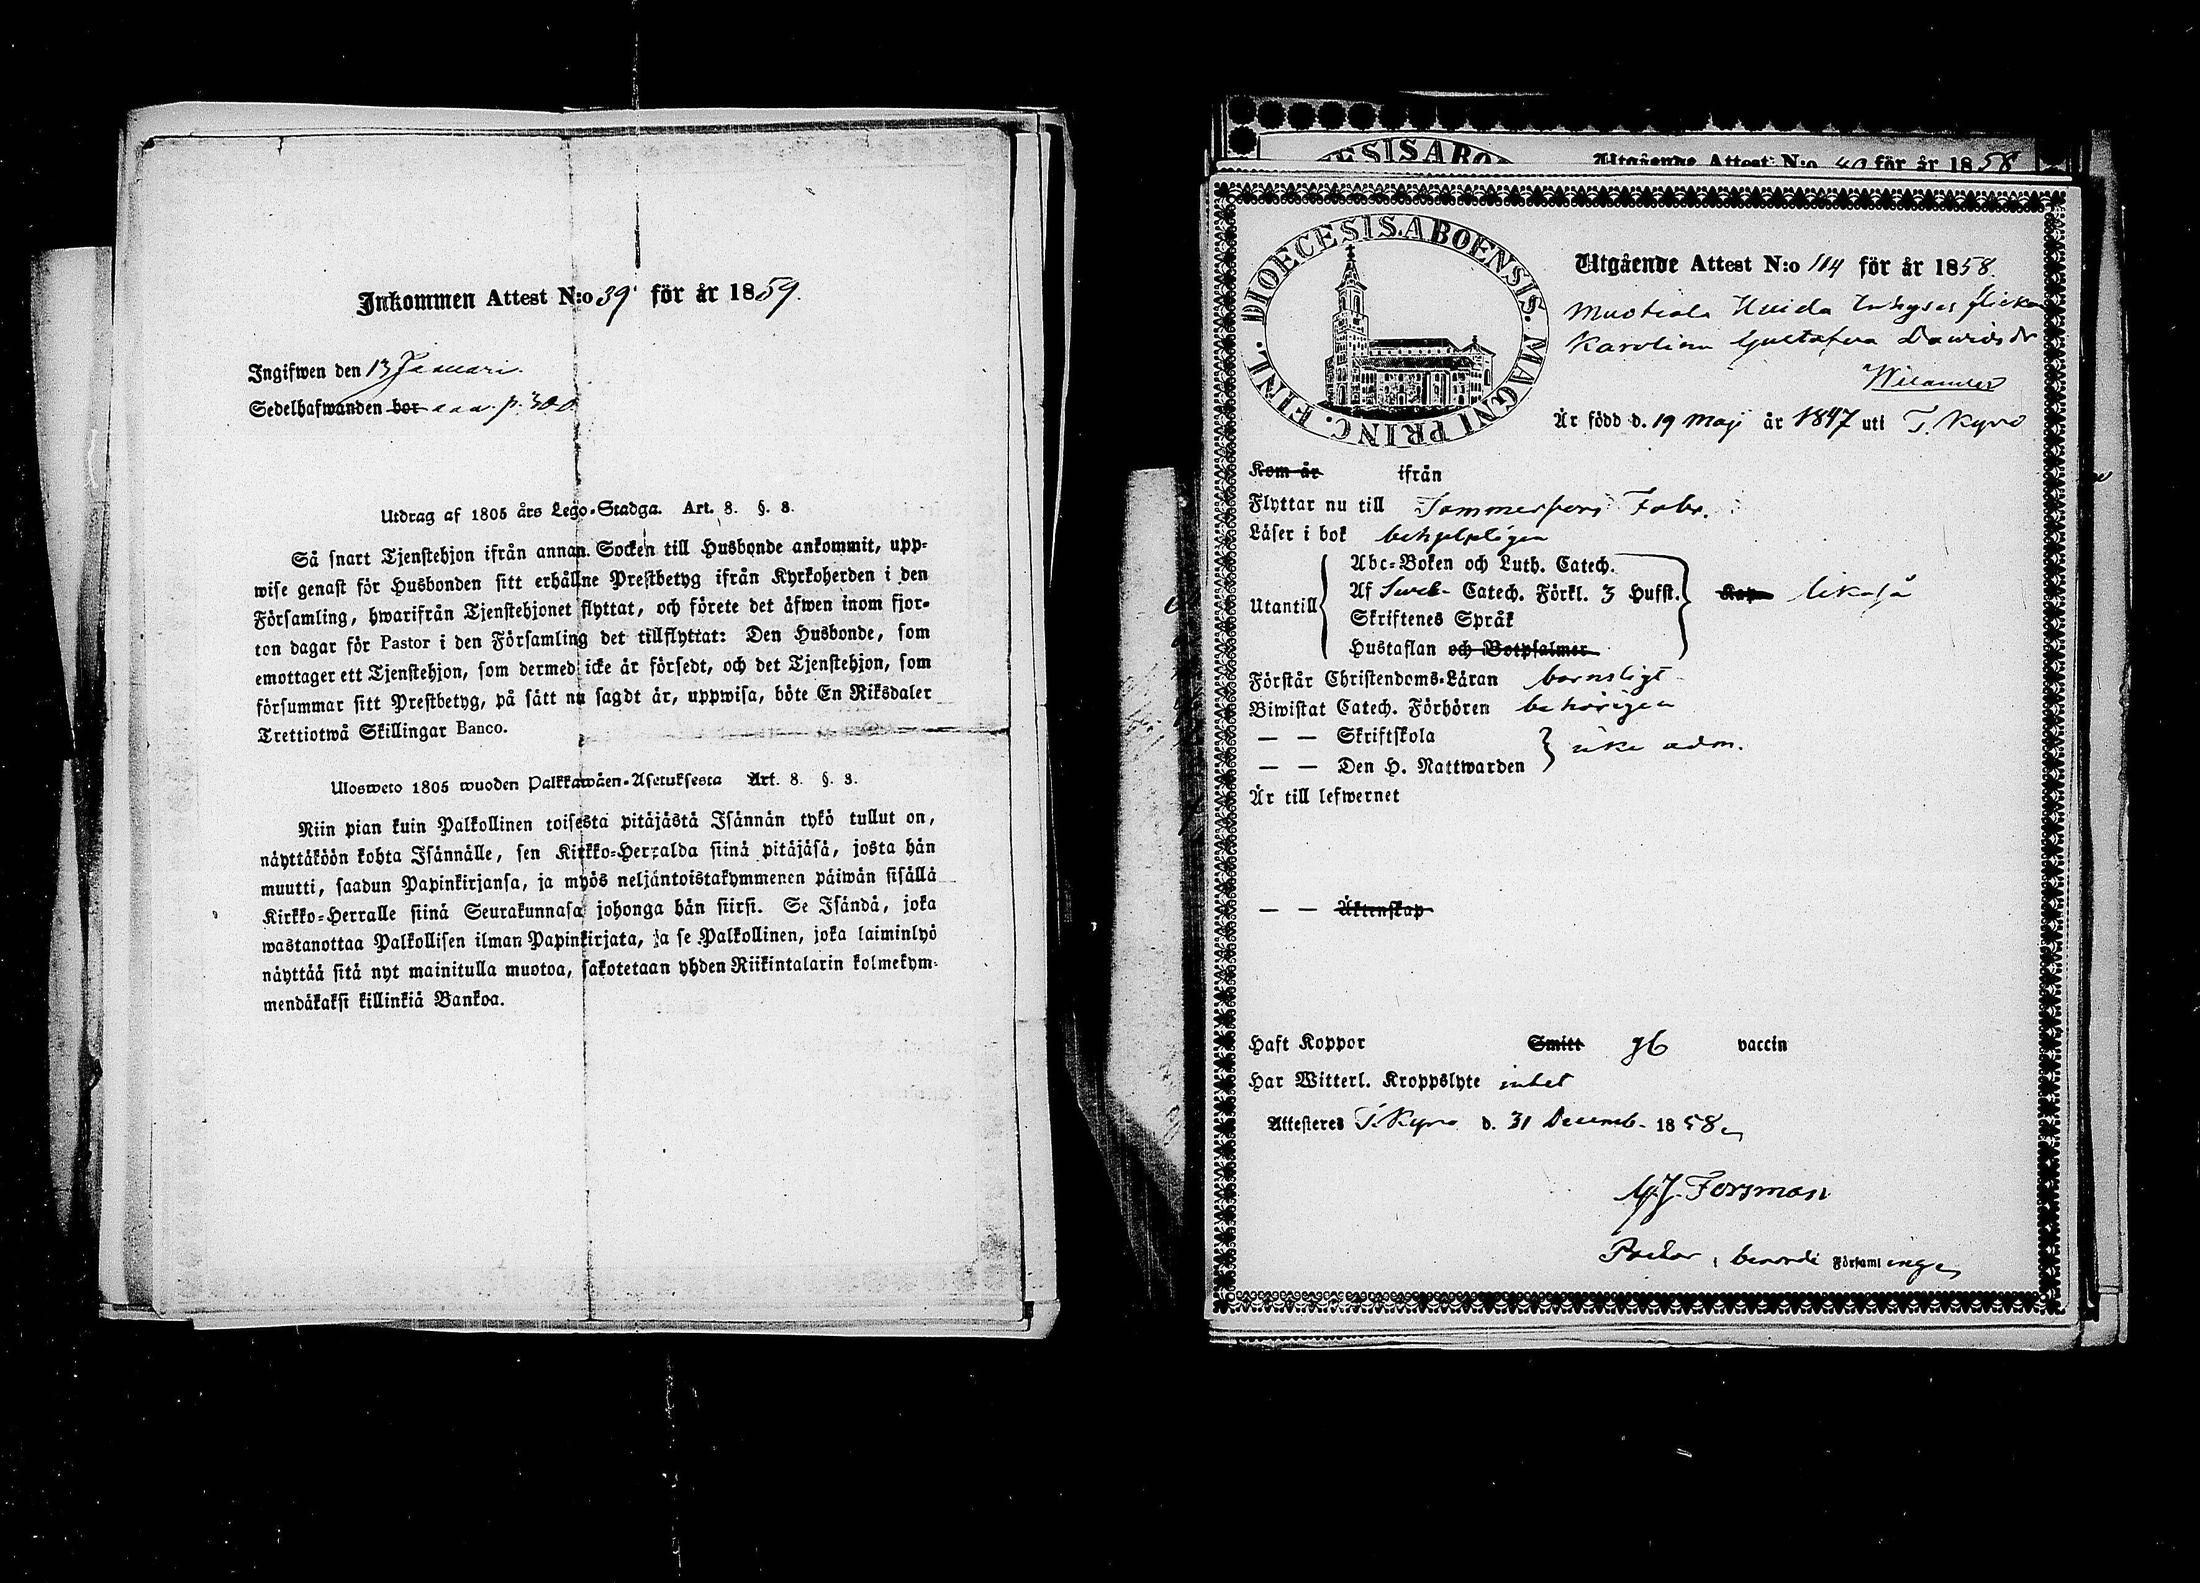 Inkommen Attest N:o 39 för år 1859.
Ingifwen den 13 Januari
Sedelhafwanden bor p. 300
Utdrag af 1805 års Lego-Stadga. Art. 8. §. 8.
Så snart Tjenstehjon ifrån annan Socken till Husbonde ankommit, upp-
wise genast för Husbonden sitt erhållne Prestbetyg ifrån Kyrkoherden i den
Församling, hwarifrån Tjenstehjonet flyttat, och förete det äfwen inom fjor-
ton dagar för Pastor i den Församling det tillflyttat: Den Husbonde, som
emottager ett Tjenstehjon, som dermed icke är försedt, och det Tjenstehjon, som
försummar sitt Prestbetyg, på sätt nu sagdt är, uppwisa, böte En Riksdaler
Trettiotwå Skillingar Banco.
Ulosweto 1805 wuoden Palkkawäen-Asetuksesta Art. 8. §. 8.
Niin pian kuin Palkollinen toisesta pitäjästä Isännän tykö tullut on,
näyttäköön kohta Isännälle, sen Kirkko-Herralda siinä pitäjäsä, josta hän
muutti, saadun Papinkirjansa, ja myös neljäntoistakymmenen päiwän sisällä
Kirkko-Herralle siinä Seurakunnasa johonga hän siirsi. Se Isändä, joka
wastanottaa Palkollisen ilman Papinkirjata, ja se Palkollinen, joka laiminlyö
näyttää sitä nyt mainitulla muotoa, sakotetaan yhden Riikintalarin kolmekym-
mendäkaksi killinkiä Bankoa.
Utgående Attest N:o 40 för år 1858
FINL. DIOECESIS. ABOENSIS. MAGNI PRINC.
Utgående Attest N:o 114 för år 1858.
Muotiala Inhyses flickan
Karolina Gustafva Davidsdr
Wilander
Är född d. 19 Maji år 1847 uti T. Kyro
Kom år ifrån
Flyttar nu till Tammerfors Fabr.
Läser i bok behjelpligen
Abc-Boken och Luth. Catech.
Utantill Af Sveb- Catech. Förkl. 3 Hufst. Kap likaså
Skriftenes Språk
Hustaflan och Botpsalmer
Förstår Christendoms-Läran barnsligt
Biwistat Catech. Förhören behörigen
— — Skriftskola
— — Den H. Nattwarden icke adm.
Är till lefwernet
— — Äktenskap
Haft Koppor Smitt gb vaccin
Har Witterl. Kroppslyte intet
Attesteres T. Kyro d. 31 Decemb. 1858,
G. J. Forsman
Pastor i berörde Församlingen